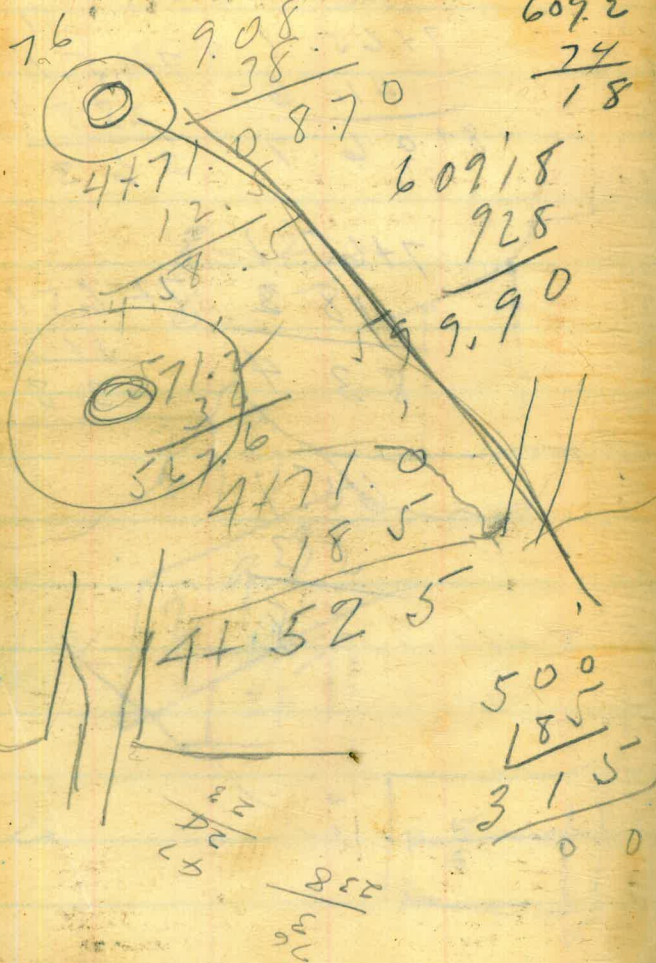 7.6
9.08
38
8.70
609.2
74
18
4+71.0
12.5
4 58.5
60918
928
59 9.90
571.2
3.6
567.6
4+71.0
18.5
4+52 5
500
185
315
00
23
24
47
238